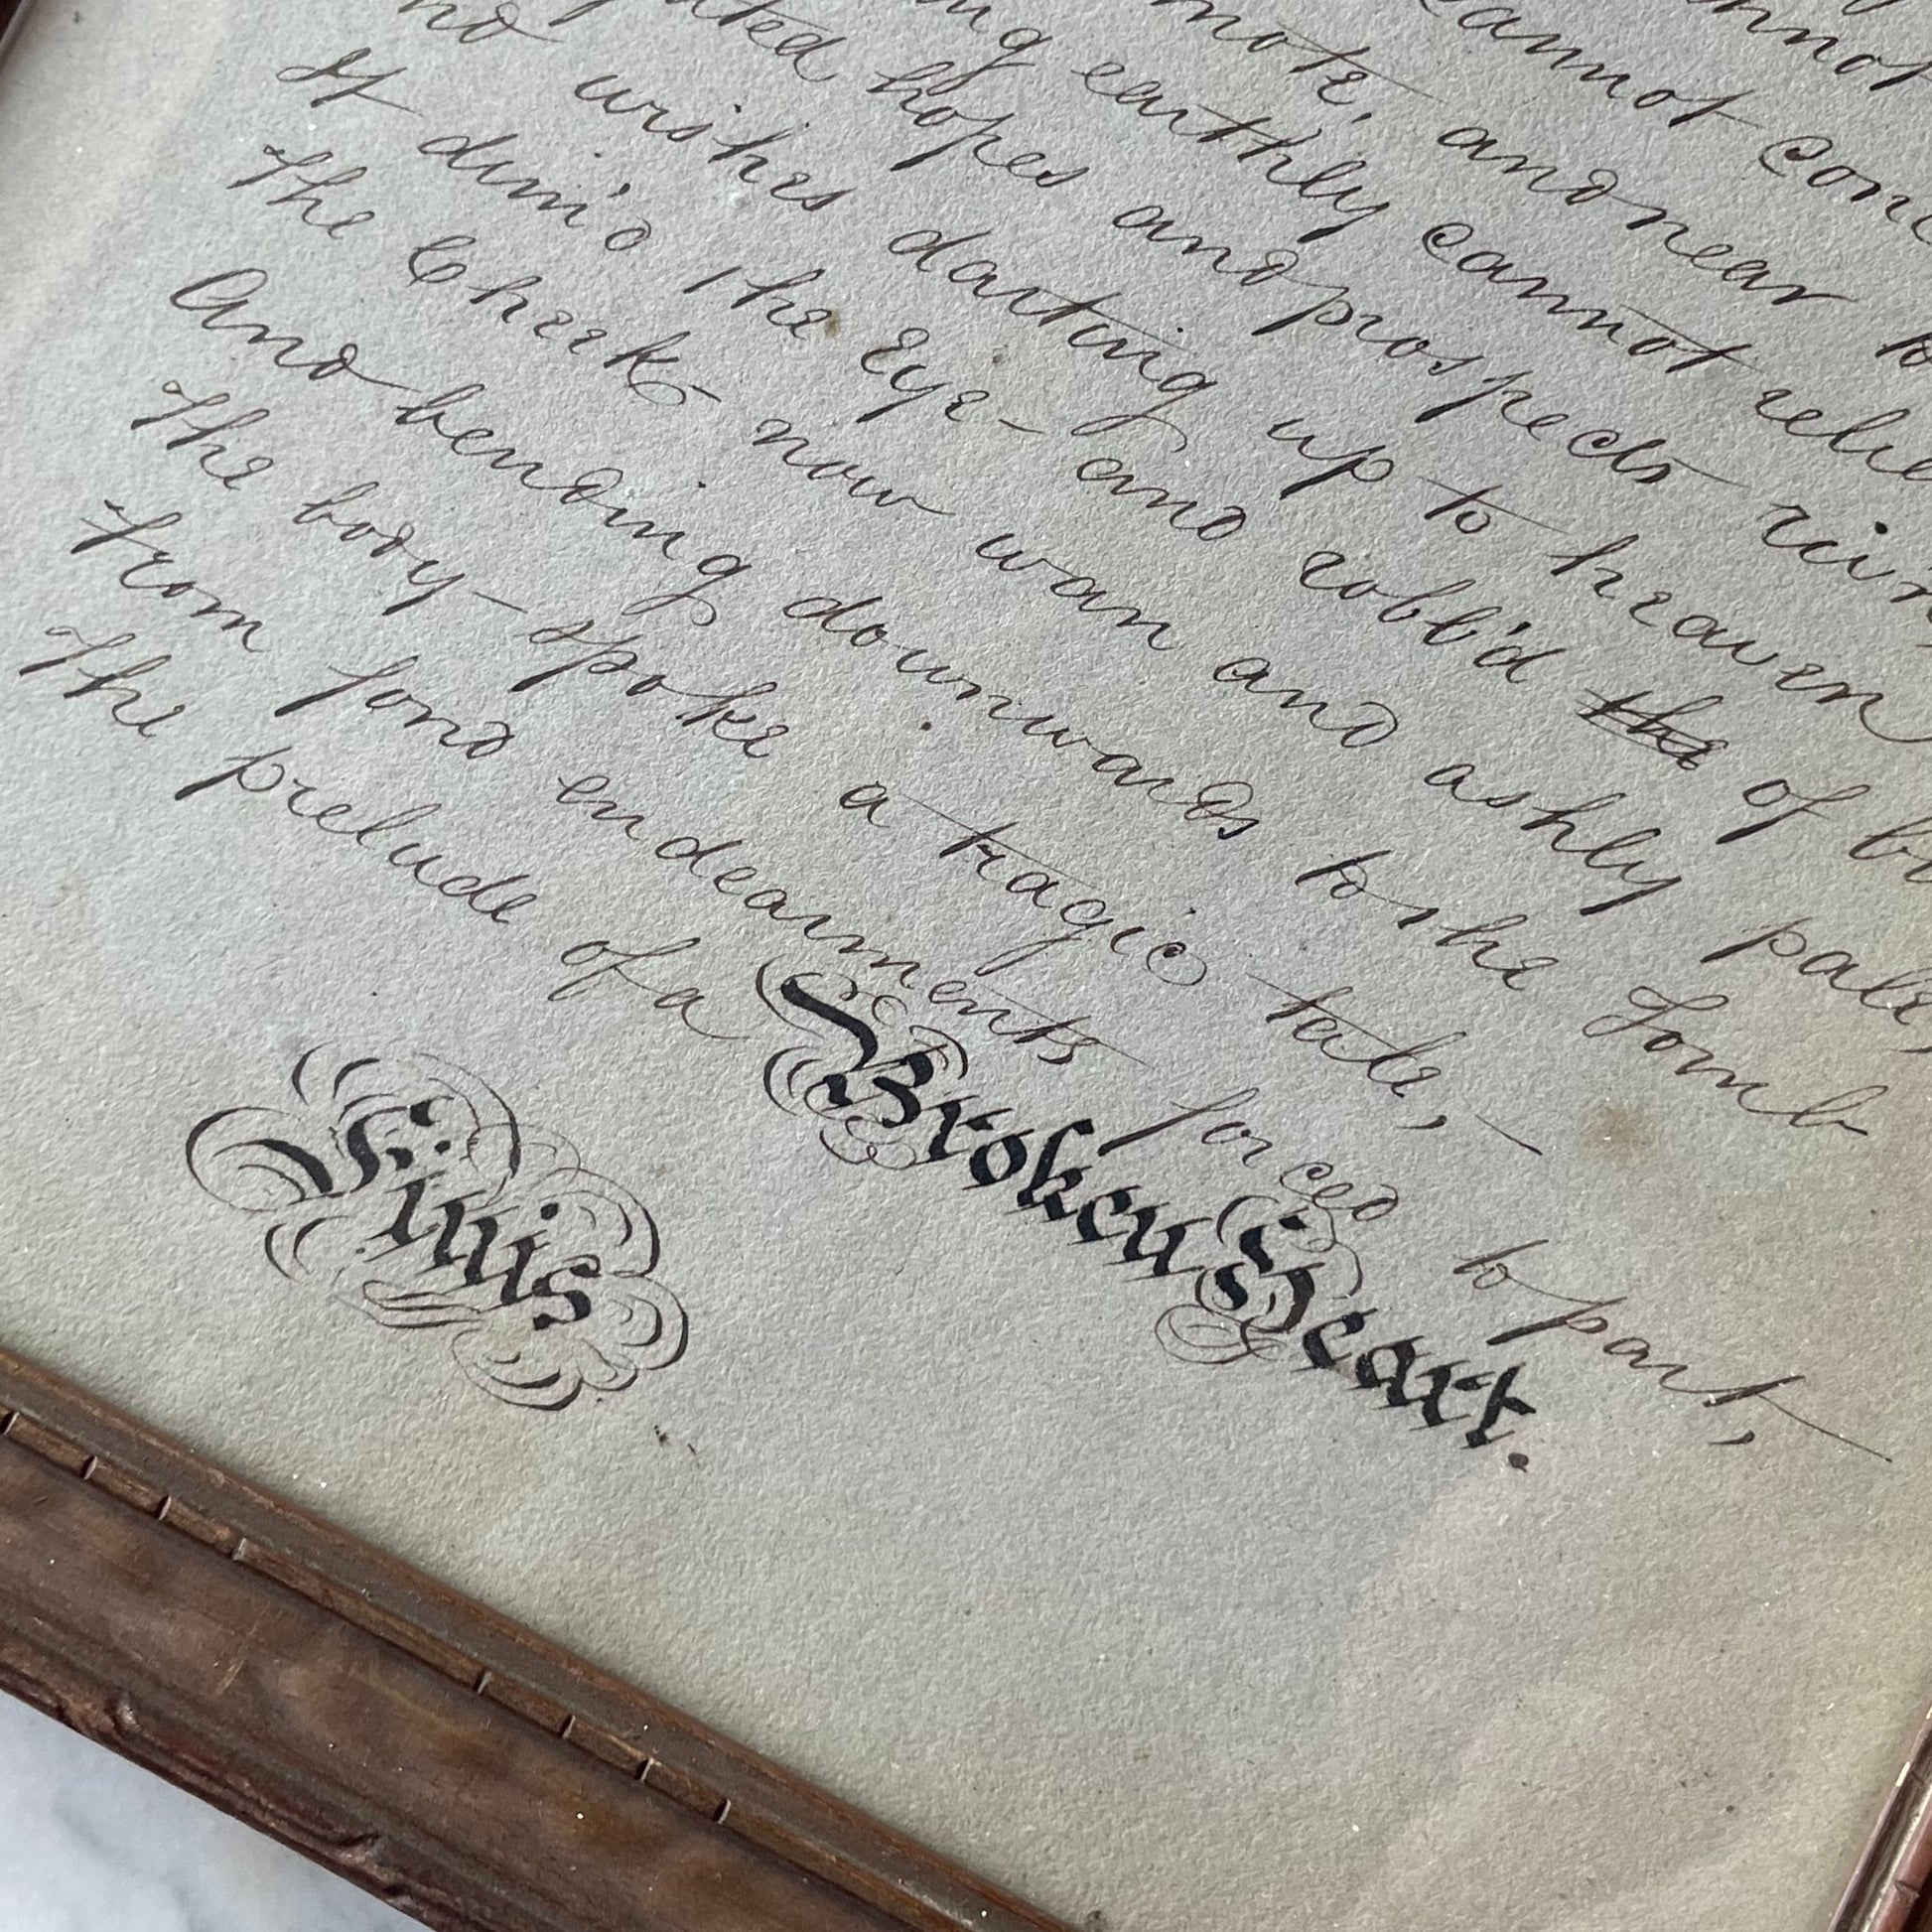 cannot conc
mote, and near to
earthly cannot
hopes and prospects
wishes darting up to heaven
It dim'd the Eye – and robb'd the of
The Cheek – now wan and ashly pale,
And bending downwards to the Tomb
The body – spoke a tragic tale, –
From fond endearments forced to part,
The prelude of a Broken Heart.
Finis